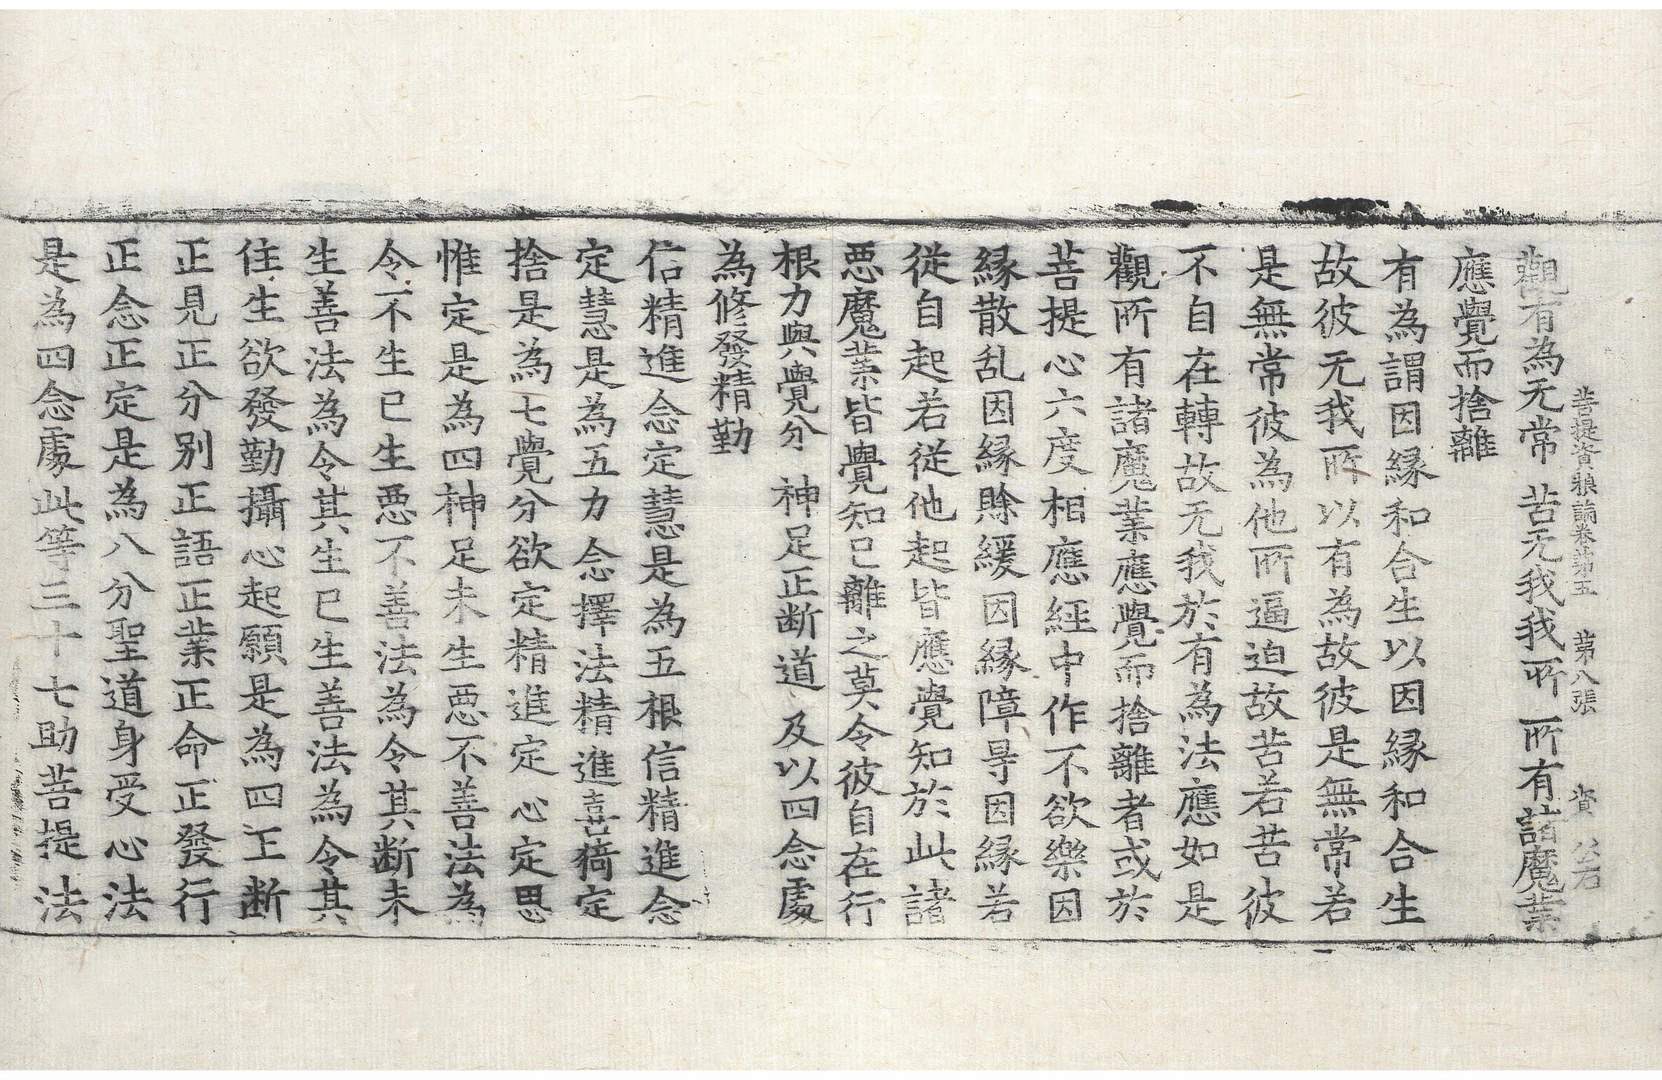 菩提資粮論卷第五　第八張　資
觀有為无常　苦无我我所　所有諸魔業
應覺而捨離
有為謂因縁和合生以因縁和合生
故彼无我所以有為故彼是無常若
是無常彼為他所逼迫故苦若苦彼
不自在轉故无我於有為法應如是
觀所有諸魔業應覺而捨離者或於
菩提心六度相應經中作不欲樂因
縁散乱因縁賖緩因縁障㝵因縁若
從自起若從他起皆應覺知於此諸
惡魔業皆覺知已離之莫令彼自在行
根力與覺分　神足正断道　及以四念處
為修發精勤
信精進念定慧是為五根信精進念
定慧是為五力念擇法精進喜猗定
捨是為七覺分欲定精進定心定思
惟定是為四神足未生惡不善法為
令不生已生惡不善法為令其断未
生善法為令其生已生善法為令其
住生欲發勤攝心起願是為四正断
正見正分别正語正業正命正發行
正念正定是為八分聖道身受心法
是為四念處此等三十七助菩提法